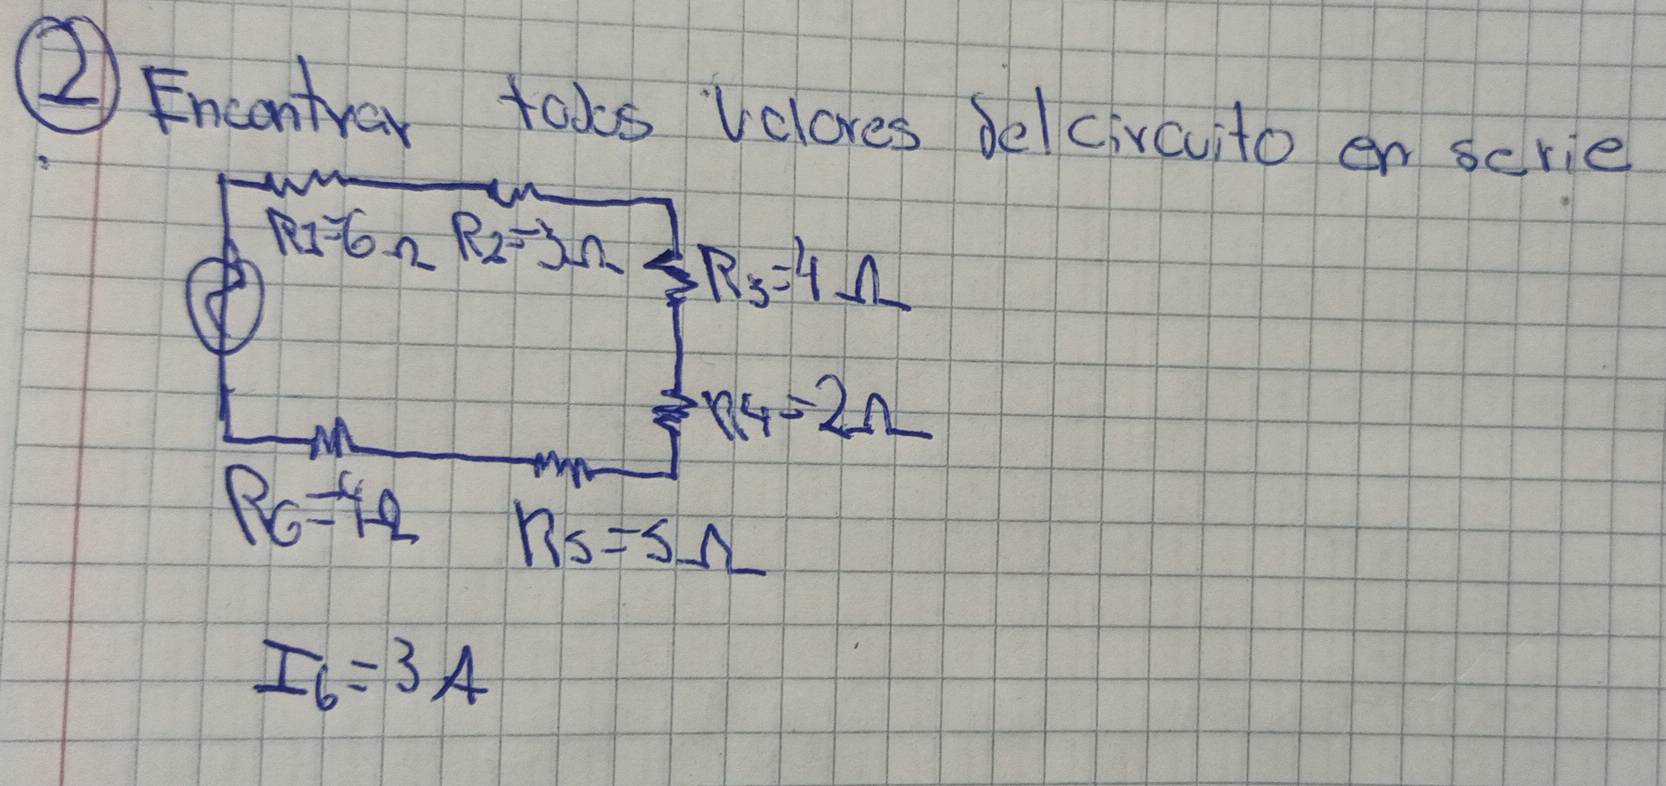 ② Encontrar todos valores del circuito en serie
R1=6Ω R2=3Ω
R3=4Ω
R4=2Ω
R6=4Ω R5=5Ω
I6=3A